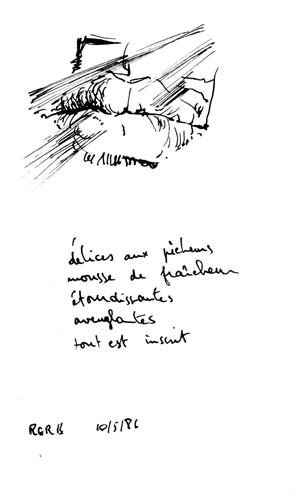 délices aux pêcheurs
mousse de fraîcheur
étourdissantes
aveuglantes
tout est inscrit
RGRB 10/5/86